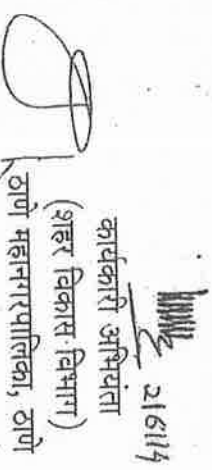 2/6/14
कार्यकारी अभियंता
(शहर विकास विभाग)
ठाणे महानगरपालिका, ठाणे